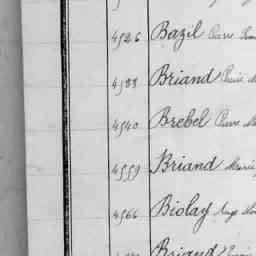 4526 Bazil Pierre
4533 Briand Pierre
4540 Brebel Pierre M
4559 Briand Marie
4566 Biolay
Briand